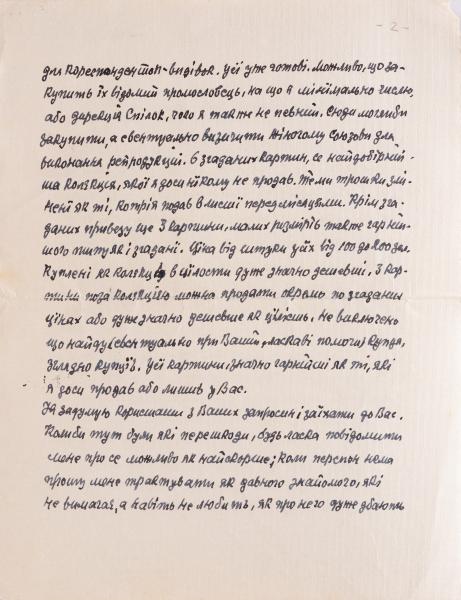 - 2 -
для кореспонденток-видівок. Усі уже готові. Можливо, що за-
купить їх відомий промословець, на що я мінімально числю,
або дирекція Спілок, чого я також не певний. Сюди моглиби
закупити, а евентуально визичити Жіночому Союзови для
виконання репродукцій. 6 згаданих картин, се найдобірній-
ша колєкція, якої я досі нікому не продав. Теми трошки змі-
нені як ті, котрі я подав в листі перед місяцями. Крім зга-
даних привезу ще 3 картини, малих розмірів також гарній-
шого типу як і згадані. Ціна від штуки усіх від 100 до 200 зол.
Куплені як колєкція в цілости дуже значно дешевші, 3 кар-
тини поза колєкцією можна продати окремо по згаданих
цінах або дуже значно дешевше як цілість. Не виключено
що найду евентуально при Вашій ласкаві помочи купця,
зглядно купців. Усі картини значно гарнійші як ті, які
я досі продав або лишив у Вас.
задумую користати з Ваших запросин і заїхати до Вас.
Колиби тут були які перешкоди, будь ласка повідомити
мене про се можливо як найскорше; коли перепон нема
прошу мене трактувати як давного знайомого, які
не вимагає, а навіть не любить, як про него дуже дбають